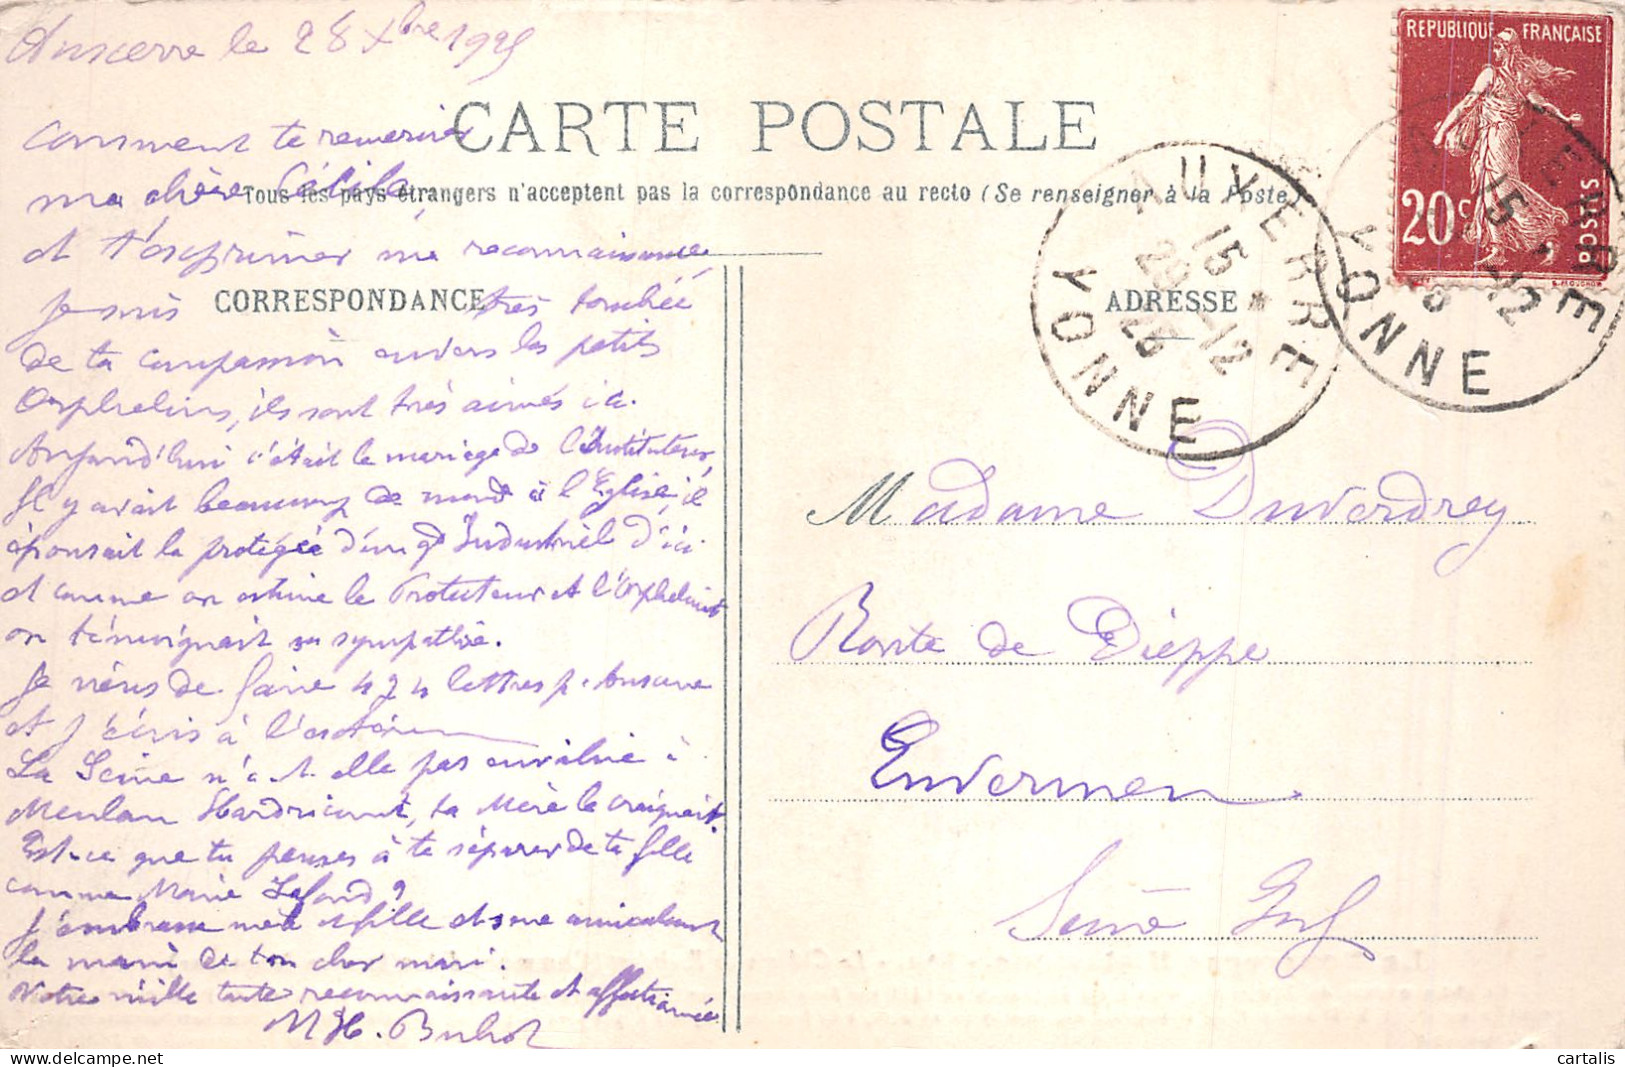 Auxerre le 28 Xbre 1925
CARTE POSTALE
Tous les pays étrangers n'acceptent pas la correspondance au recto (Se renseigner à la Poste)
CORRESPONDANCE
ADRESSE
REPUBLIQUE FRANÇAISE
20c
POSTES
AUXERRE
15
28 -12
25
YONNE
AUXERRE
15
-12
YONNE
Comment te remercier
ma chère
et t'exprimer ma reconnaissance
Je suis très touchée
de ta compassion envers les petits
Orphelins, ils sont très aimés ici.
Aujourd'hui c'était le mariage de l'Instituteur
Il y avait beaucoup de monde à l'Eglise, il
épousait la protégée d'un gd Industriel d'ici
et comme on estime le Protecteur et l'Orphelinat
on témoignait sa sympathie.
Je viens de faire 424 lettres p. Auxerre
et j'écris à l'extérieur
La Seine n'a t elle pas envahie à
Meulan Hardricourt, ta Mère le craignait.
Est-ce que tu penses à te séparer de ta fille
comme Marie Lafond?
J'embrasse mère et fille et serre amicalement
la main de ton cher mari.
Votre vieille tante reconnaissante et affectionnée
M H.
Madame Duverdrey
Route de Dieppe
Envermeu
Seine Inf
cartalis